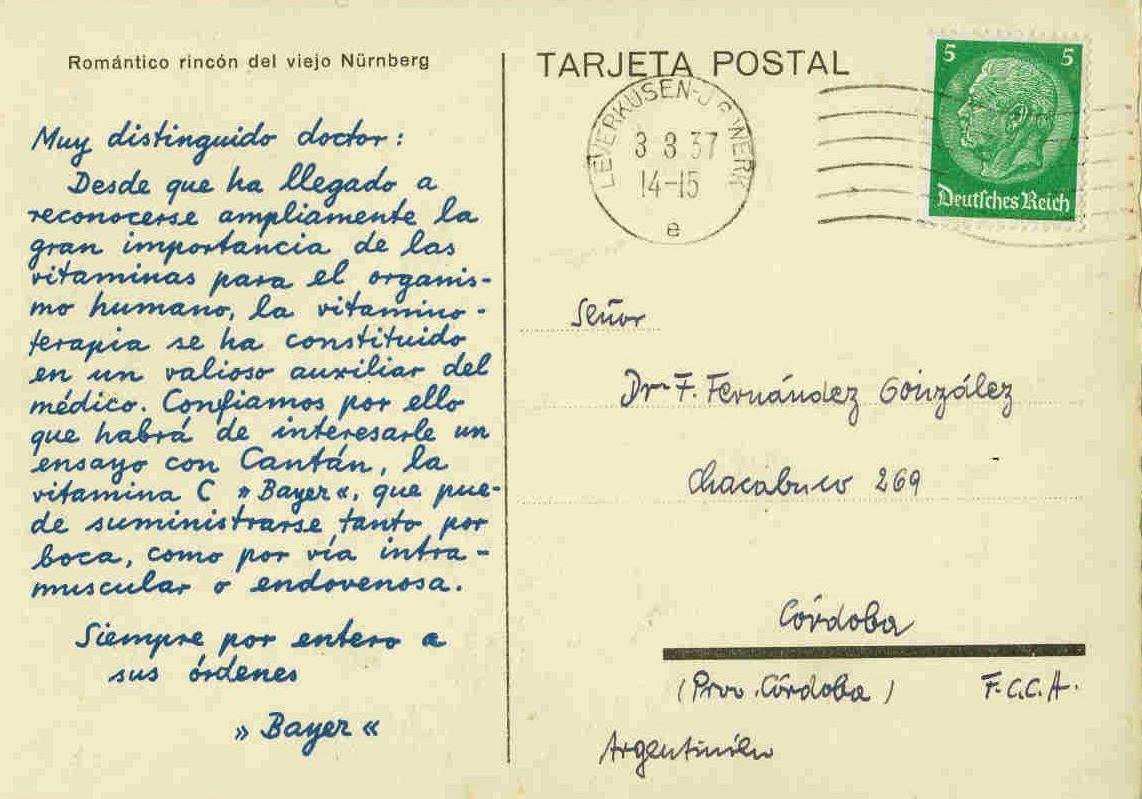 Romántico rincón del viejo Nürnberg
Muy distinguido doctor:
Desde que ha llegado a
reconocerse ampliamente la
gran importancia de las
vitaminas para el organis-
mo humano, la vitamino-
terapia se ha constituido
en un valioso auxiliar del
médico. Confiamos por ello
que habrá de interesarle un
ensayo con Cantán, la
vitamina C »Bayer«, que pue-
de suministrarse, tanto por
boca, como por vía intra-
muscular o endovenosa.
Siempre por entero a
sus órdenes
»Bayer«
TARJETA POSTAL
LEVERKUSEN-J G WERK
3 3 37
14-15
e
5 5
Deutsches Reich
Señor
Dr F. Fernández González
Chacabuco 269
Córdoba
(Prov. Córdoba) F.C.C.A.
Argentinien